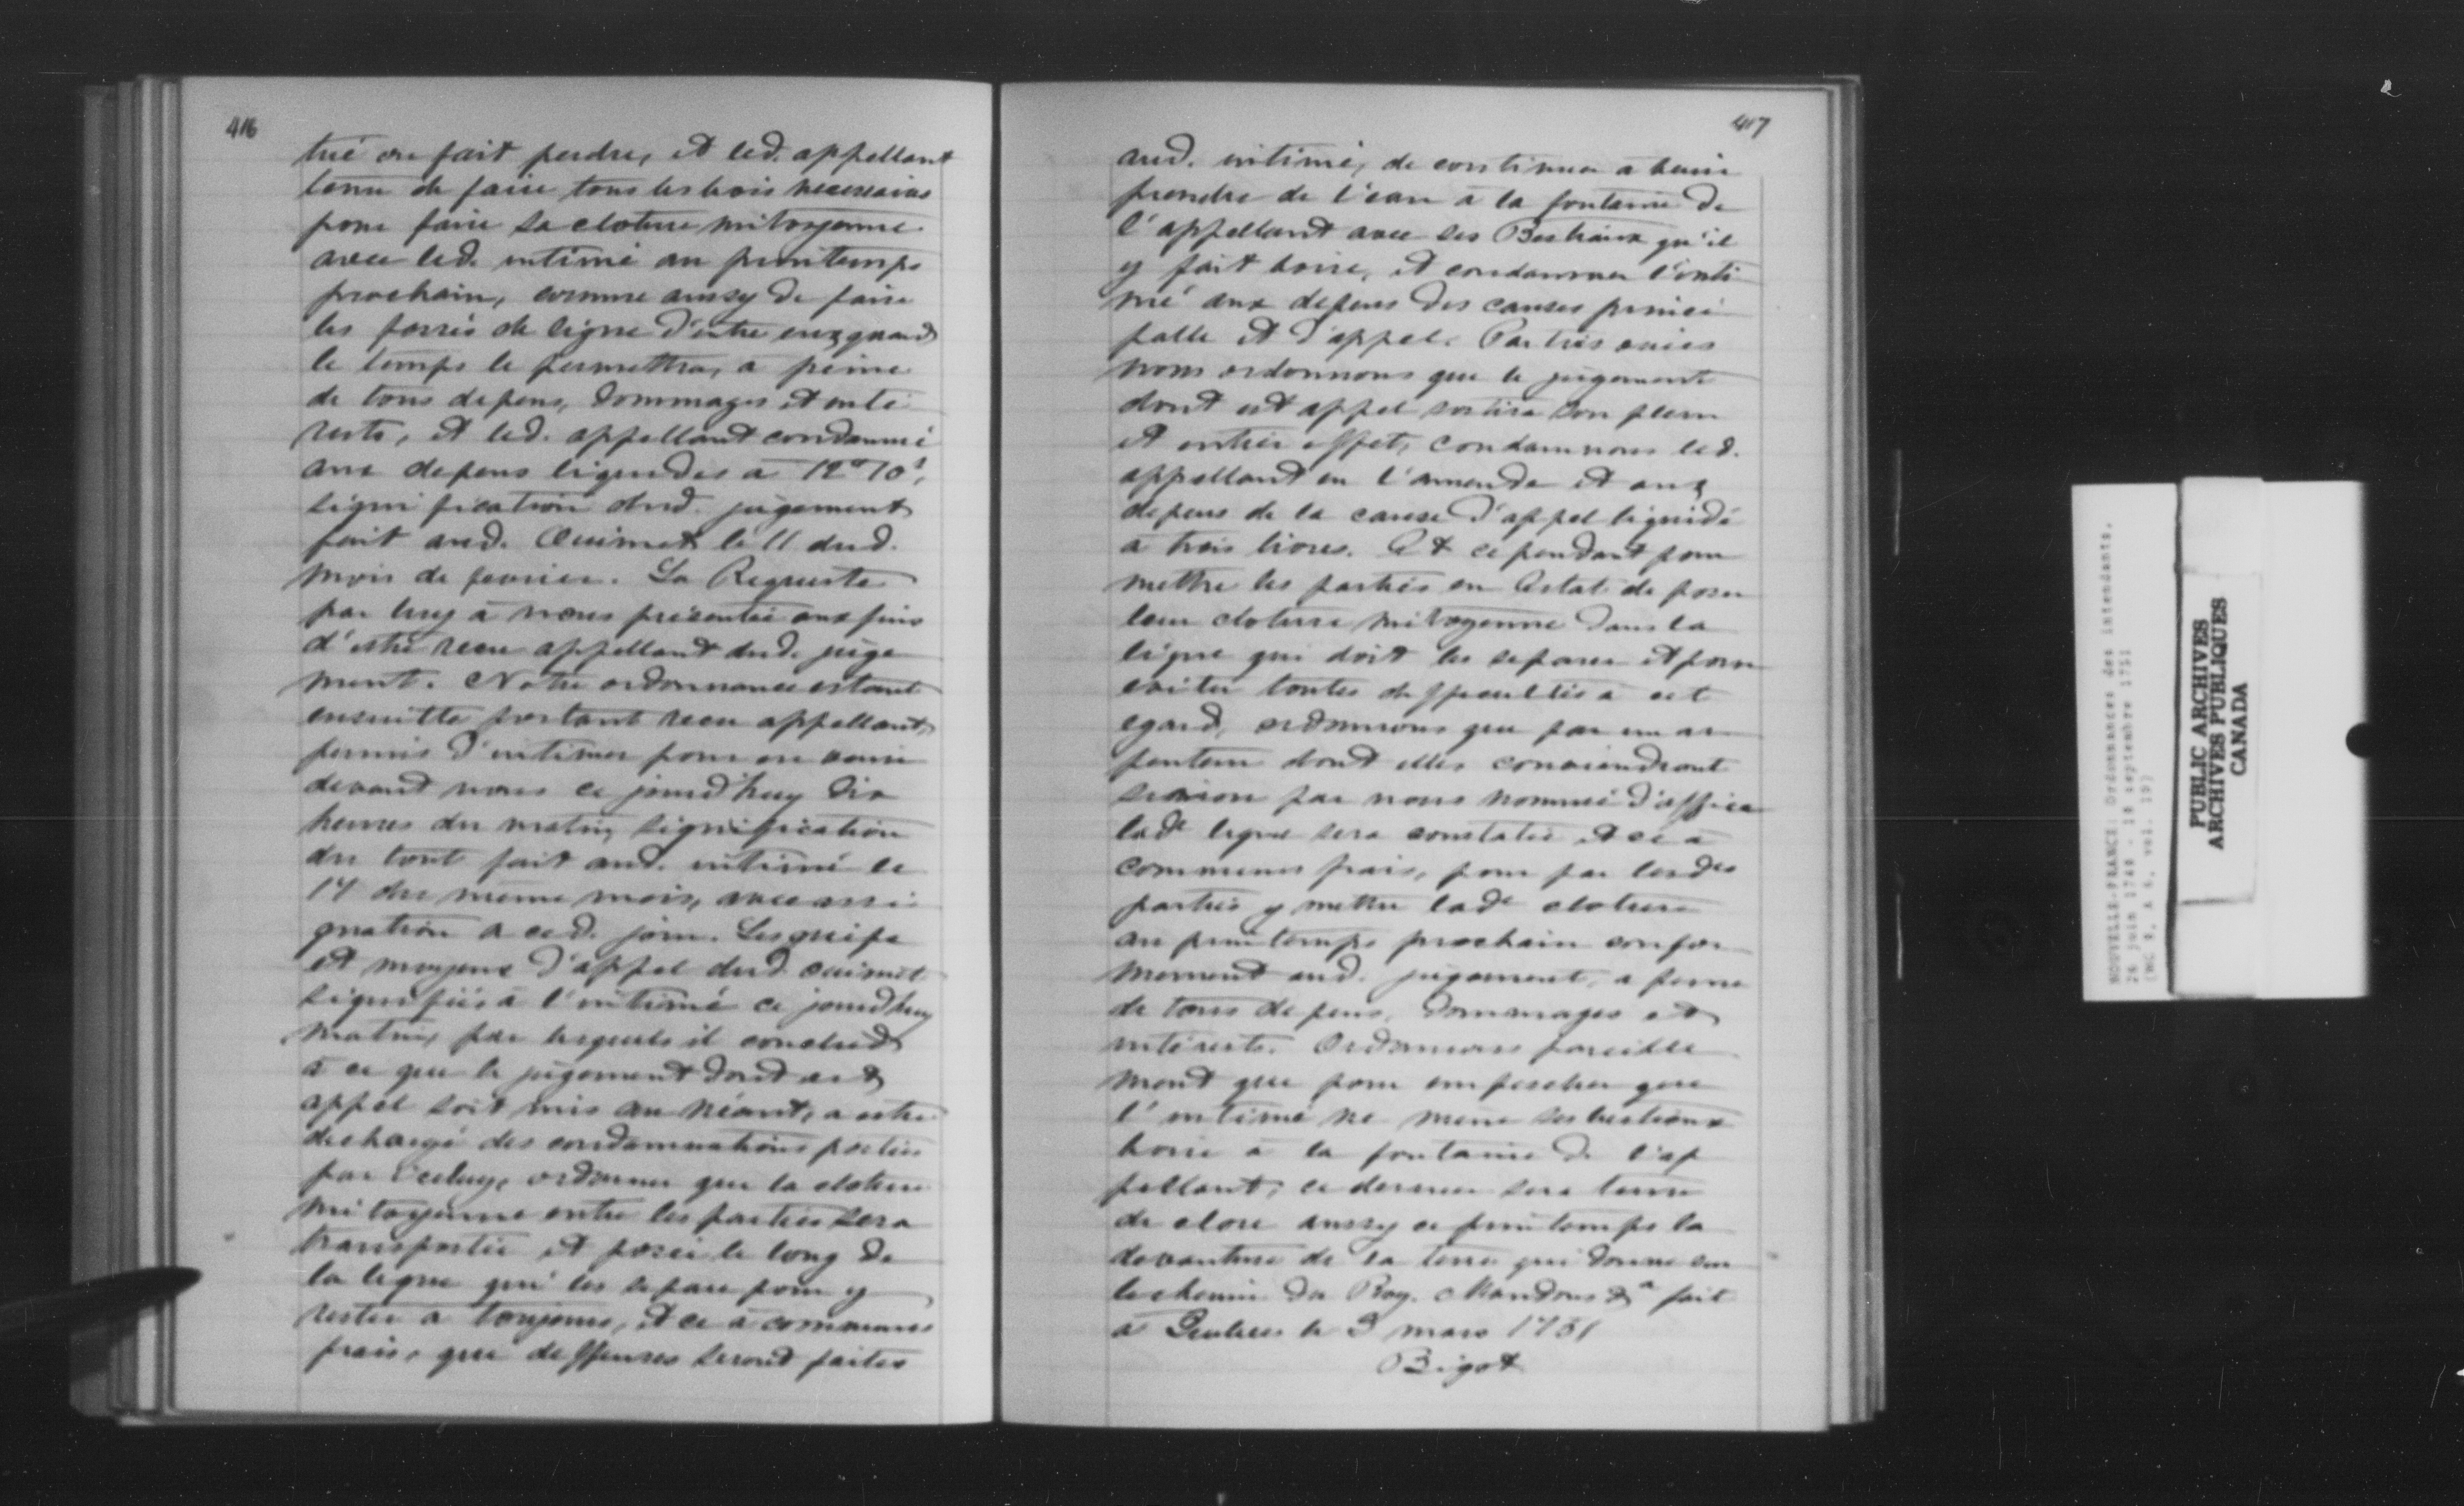 416
tué ou fait perdre, et led. appellant
tenu de faire tous les bois necessaires
pour faire sa cloture mitoyenne
avec led. intimé au printemps
prochain, comme aussy de faire
les fossés de ligne d'entre eux quand
le temps le permettra, a peine
de tous depens, dommages et inté
rests, et led. appellant condamné
aux depens liquidés a 12# 10s,
signification dud. jugement
fait aud. Ouimet le 11 dud.
mois de fevrier. La Requeste
par luy à nous présentée aux fins
d'estre reçu appellant dud. juge
ment. Notre ordonnance estant
ensuitte portant reçu appellant,
permis d'intimer pour en venir
devant nous ce jourd'huy dix
heures du matin, signification
du tout fait aud. intimé le
14 du meme mois, avec assi
gnation a ced. jour. Les griefs
et moyens d'appel dud. Ouimet
signifiés à l'intimé ce jourd'huy
matin, par lesquels il conclud
à ce que le jugement dont est
appel soit mis au néant, a estre
dechargé des condamnations portées
par iceluy, ordonner que la cloture
mitoyenne entre les parties sera
transportée et posée le long de
la ligne qui les separe pour y
rester a toujours, et ce à communs
frais, que deffenses seront faites
417
aud. intimé, de continuer a venir
prendre de l'eau à la fontaine de
l'appellant avec ses Bestiaux qu'il
y fait boire, et condamner l'inti
mé aux depens des causes princi
palle et d'appel. Parties ouies
nous ordonnons que le jugement
dont est appel sortira son plein
et entier effet, condamnons led.
appellant en l'amende et aux
depens de la cause d'appel liquidé
à trois livres. Et cependant pour
mettre les parties en Estat de poser
leur cloture mitoyenne dans la
ligne qui doit les separer et pour
eviter toutes difficultés à cet
egard, ordonnons que par un ar
penteur dont elles conviendront
sinon par nous nommé d'office
lade ligne sera constatée et ce à
communs frais, pour par lesdes
parties y mettre lade cloture
au printemps prochain confor
mement aud. jugement, a peine
de tous depens, dommages et
intérests. Ordonnons pareille
ment que pour empescher que
l'intimé ne mene ses bestiaux
boire à la fontaine de l'ap
pellant, ce dernier sera tenu
de clore aussy ce printemps la
devanture de la terre qui donne sur
le chemin du Roy. Mandons &a fait
à Quebec le 3 mars 1751
Bigot
NOUVELLE-FRANCE: Ordonnances des intendants.
26 juin 1749 - 18 septembre 1751
(MG 8, A 6, vol. 19)
PUBLIC ARCHIVES
ARCHIVES PUBLIQUES
CANADA